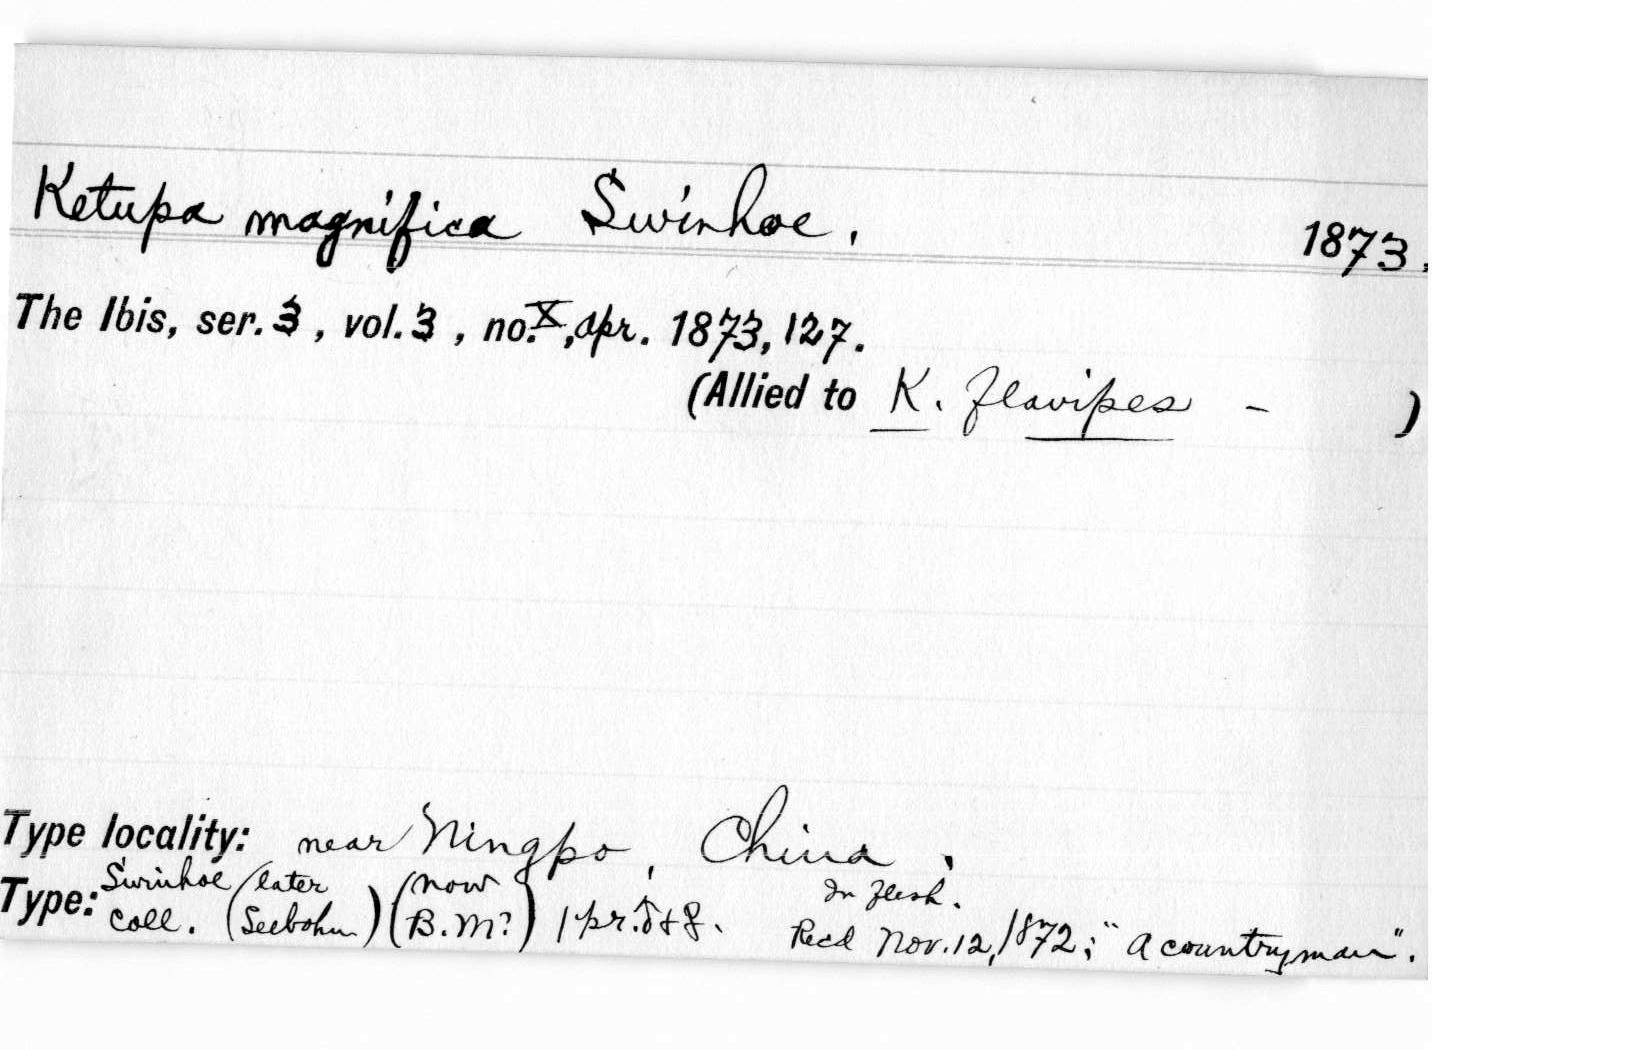 Ketupa magnifica Swinhoe. 1873.
The Ibis, ser. 3, vol. 3, no. X, Apr. 1873, 127.
(Allied to K. flavipes - )
Type locality: near Ningpo, China.
Type: Swinhoe coll. (later Seebohm) (now B.M?) 1 pr. ♂ + ♀. In flesh. Recd Nov. 12, 1872; "A countryman".